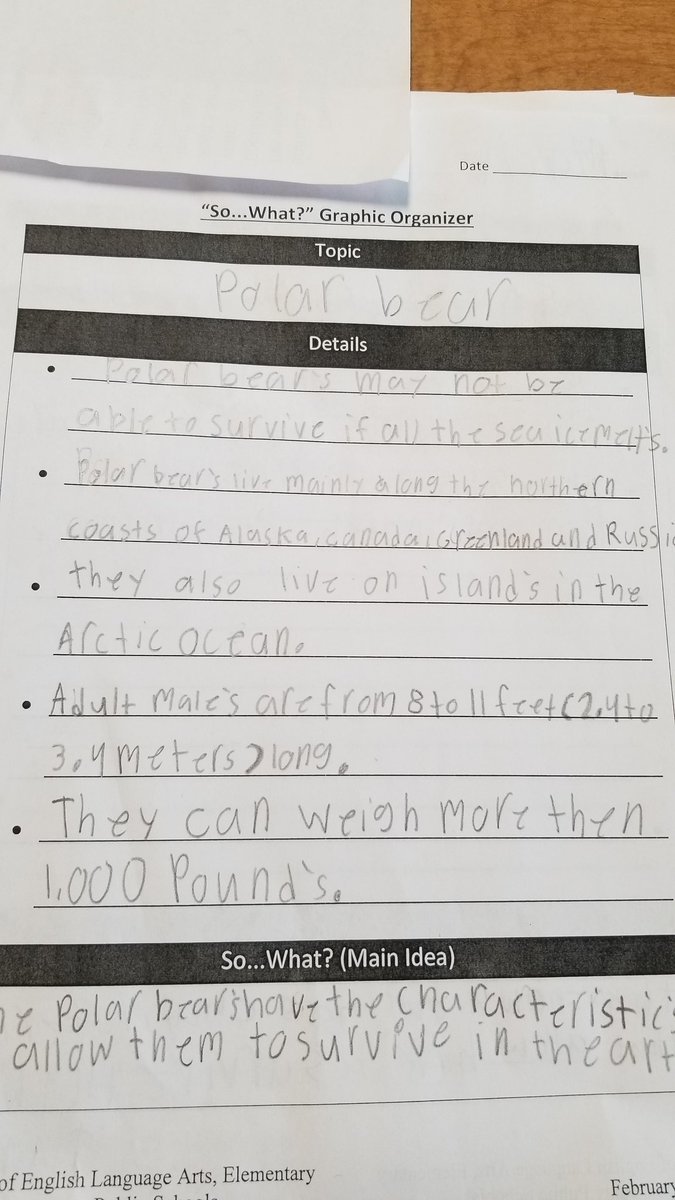 Date
“So...What?” Graphic Organizer
Topic
Polar bear
Details
Polar bear's may not be
able to survive if all the sea ice melt's.
Polar bear's live mainly along the northern
coasts of Alaska, canada, Greenland and Russi
they also live on island's in the
Arctic ocean.
Adult male's are from 8 to 11 feet (2.4 to
3.4 meters) long.
They can weigh more then
1,000 Pound's.
So...What? (Main Idea)
Polar bear's have the characteristic's
allow them to survive in the art
of English Language Arts, Elementary
February
Public Schools